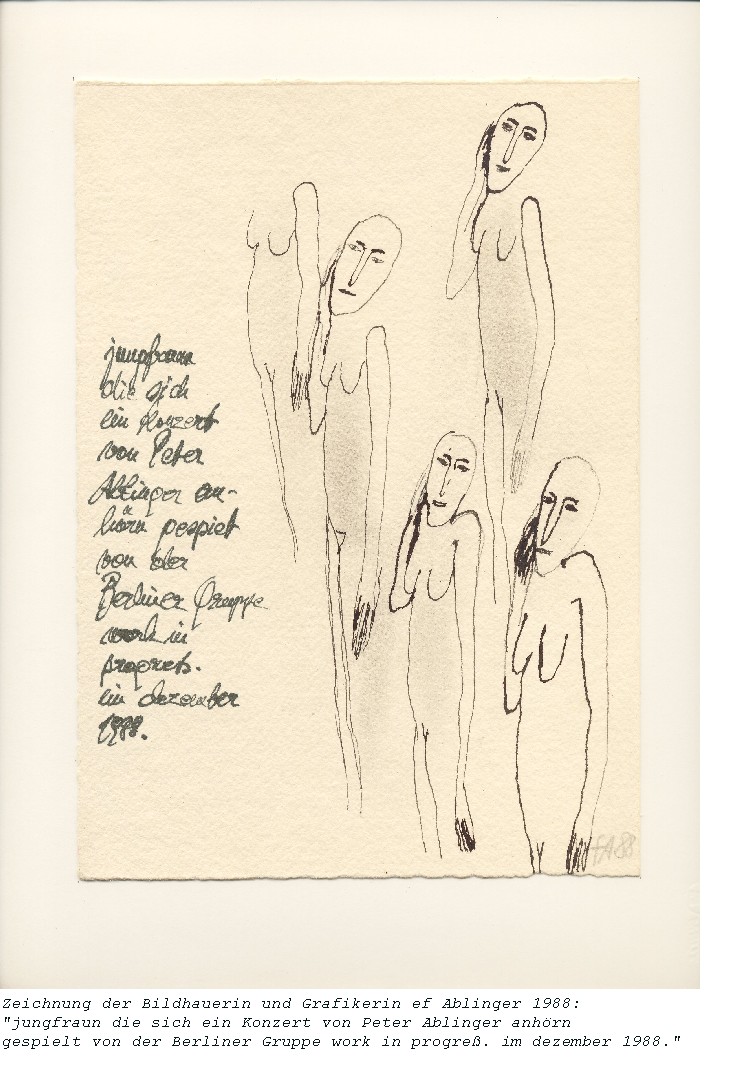 jungfraun
die sich
ein Konzert
von Peter
Ablinger an-
hörn gespielt
von der
Berliner Gruppe
work in
progreß.
im dezember
1988.
fA 88
Zeichnung der Bildhauerin und Grafikerin ef Ablinger 1988:
"jungfraun die sich ein Konzert von Peter Ablinger anhörn
gespielt von der Berliner Gruppe work in progreß. im dezember 1988."